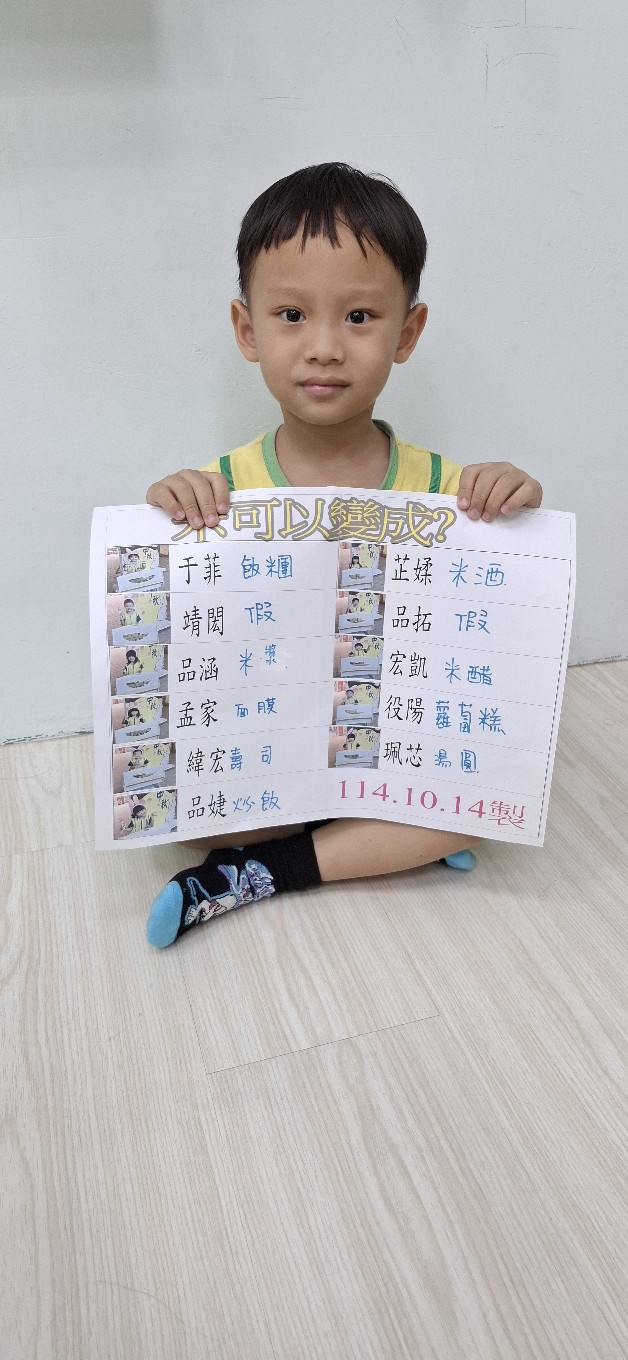 米可以變成?
于菲 飯糰
靖閎 假
品涵 米漿
孟家 面膜
緯宏 壽司
品婕 炒飯
芷媃 米酒
品拓 假
宏凱 米醋
役陽 蘿蔔糕
珮芯 湯圓
114.10.14製